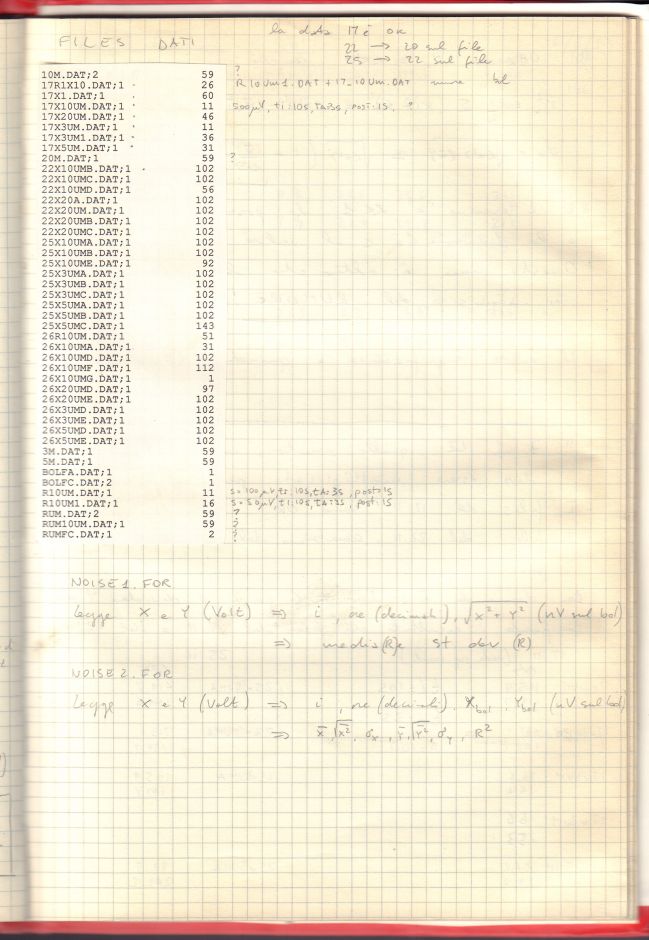 FILES DATI
la data 17 è ok
22 → 20 sul file
25 → 22 sul file
10M.DAT;2 59 ?
17R1X10.DAT;1 26 R10Um1.DAT + 17_10Um.DAT
17X1.DAT;1 60
17X10UM.DAT;1 11 500μV, ti:10S, TA:3S, POST:1S, ?
17X20UM.DAT;1 46
17X3UM.DAT;1 11
17X3UM1.DAT;1 36
17X5UM.DAT;1 31
20M.DAT;1 59 ?
22X10UMB.DAT;1 102
22X10UMC.DAT;1 102
22X10UMD.DAT;1 56
22X20A.DAT;1 102
22X20UM.DAT;1 102
22X20UMB.DAT;1 102
22X20UMC.DAT;1 102
25X10UMA.DAT;1 102
25X10UMB.DAT;1 102
25X10UME.DAT;1 92
25X3UMA.DAT;1 102
25X3UMB.DAT;1 102
25X3UMC.DAT;1 102
25X5UMA.DAT;1 102
25X5UMB.DAT;1 102
25X5UMC.DAT;1 143
26R10UM.DAT;1 51
26X10UMA.DAT;1 31
26X10UMD.DAT;1 102
26X10UMF.DAT;1 112
26X10UMG.DAT;1 1
26X20UMD.DAT;1 97
26X20UME.DAT;1 102
26X3UMD.DAT;1 102
26X3UME.DAT;1 102
26X5UMD.DAT;1 102
26X5UME.DAT;1 102
3M.DAT;1 59
5M.DAT;1 59
BOLFA.DAT;1 1
BOLFC.DAT;2 1
R10UM.DAT;1 11 S=100μV, ti:10S, tA:3S, post:1S
R10UM1.DAT;1 16 S=50μV, ti:10S, tA:3S, post:1S
RUM.DAT;2 59 ?
RUM10UM.DAT;1 59 ?
RUMFC.DAT;1 2 ?
NOISE1.FOR
Legge X e Y (Volt) ⇒ i, ore (decimali), √X²+Y² (nV sul bol)
⇒ media(R) e st dev (R)
NOISE2.FOR
Legge X e Y (Volt) ⇒ i, ore (decimali), Xbol, Ybol (nV sul bol)
⇒ x̄, √x̄², σx, ȳ, √ȳ², σy, R²